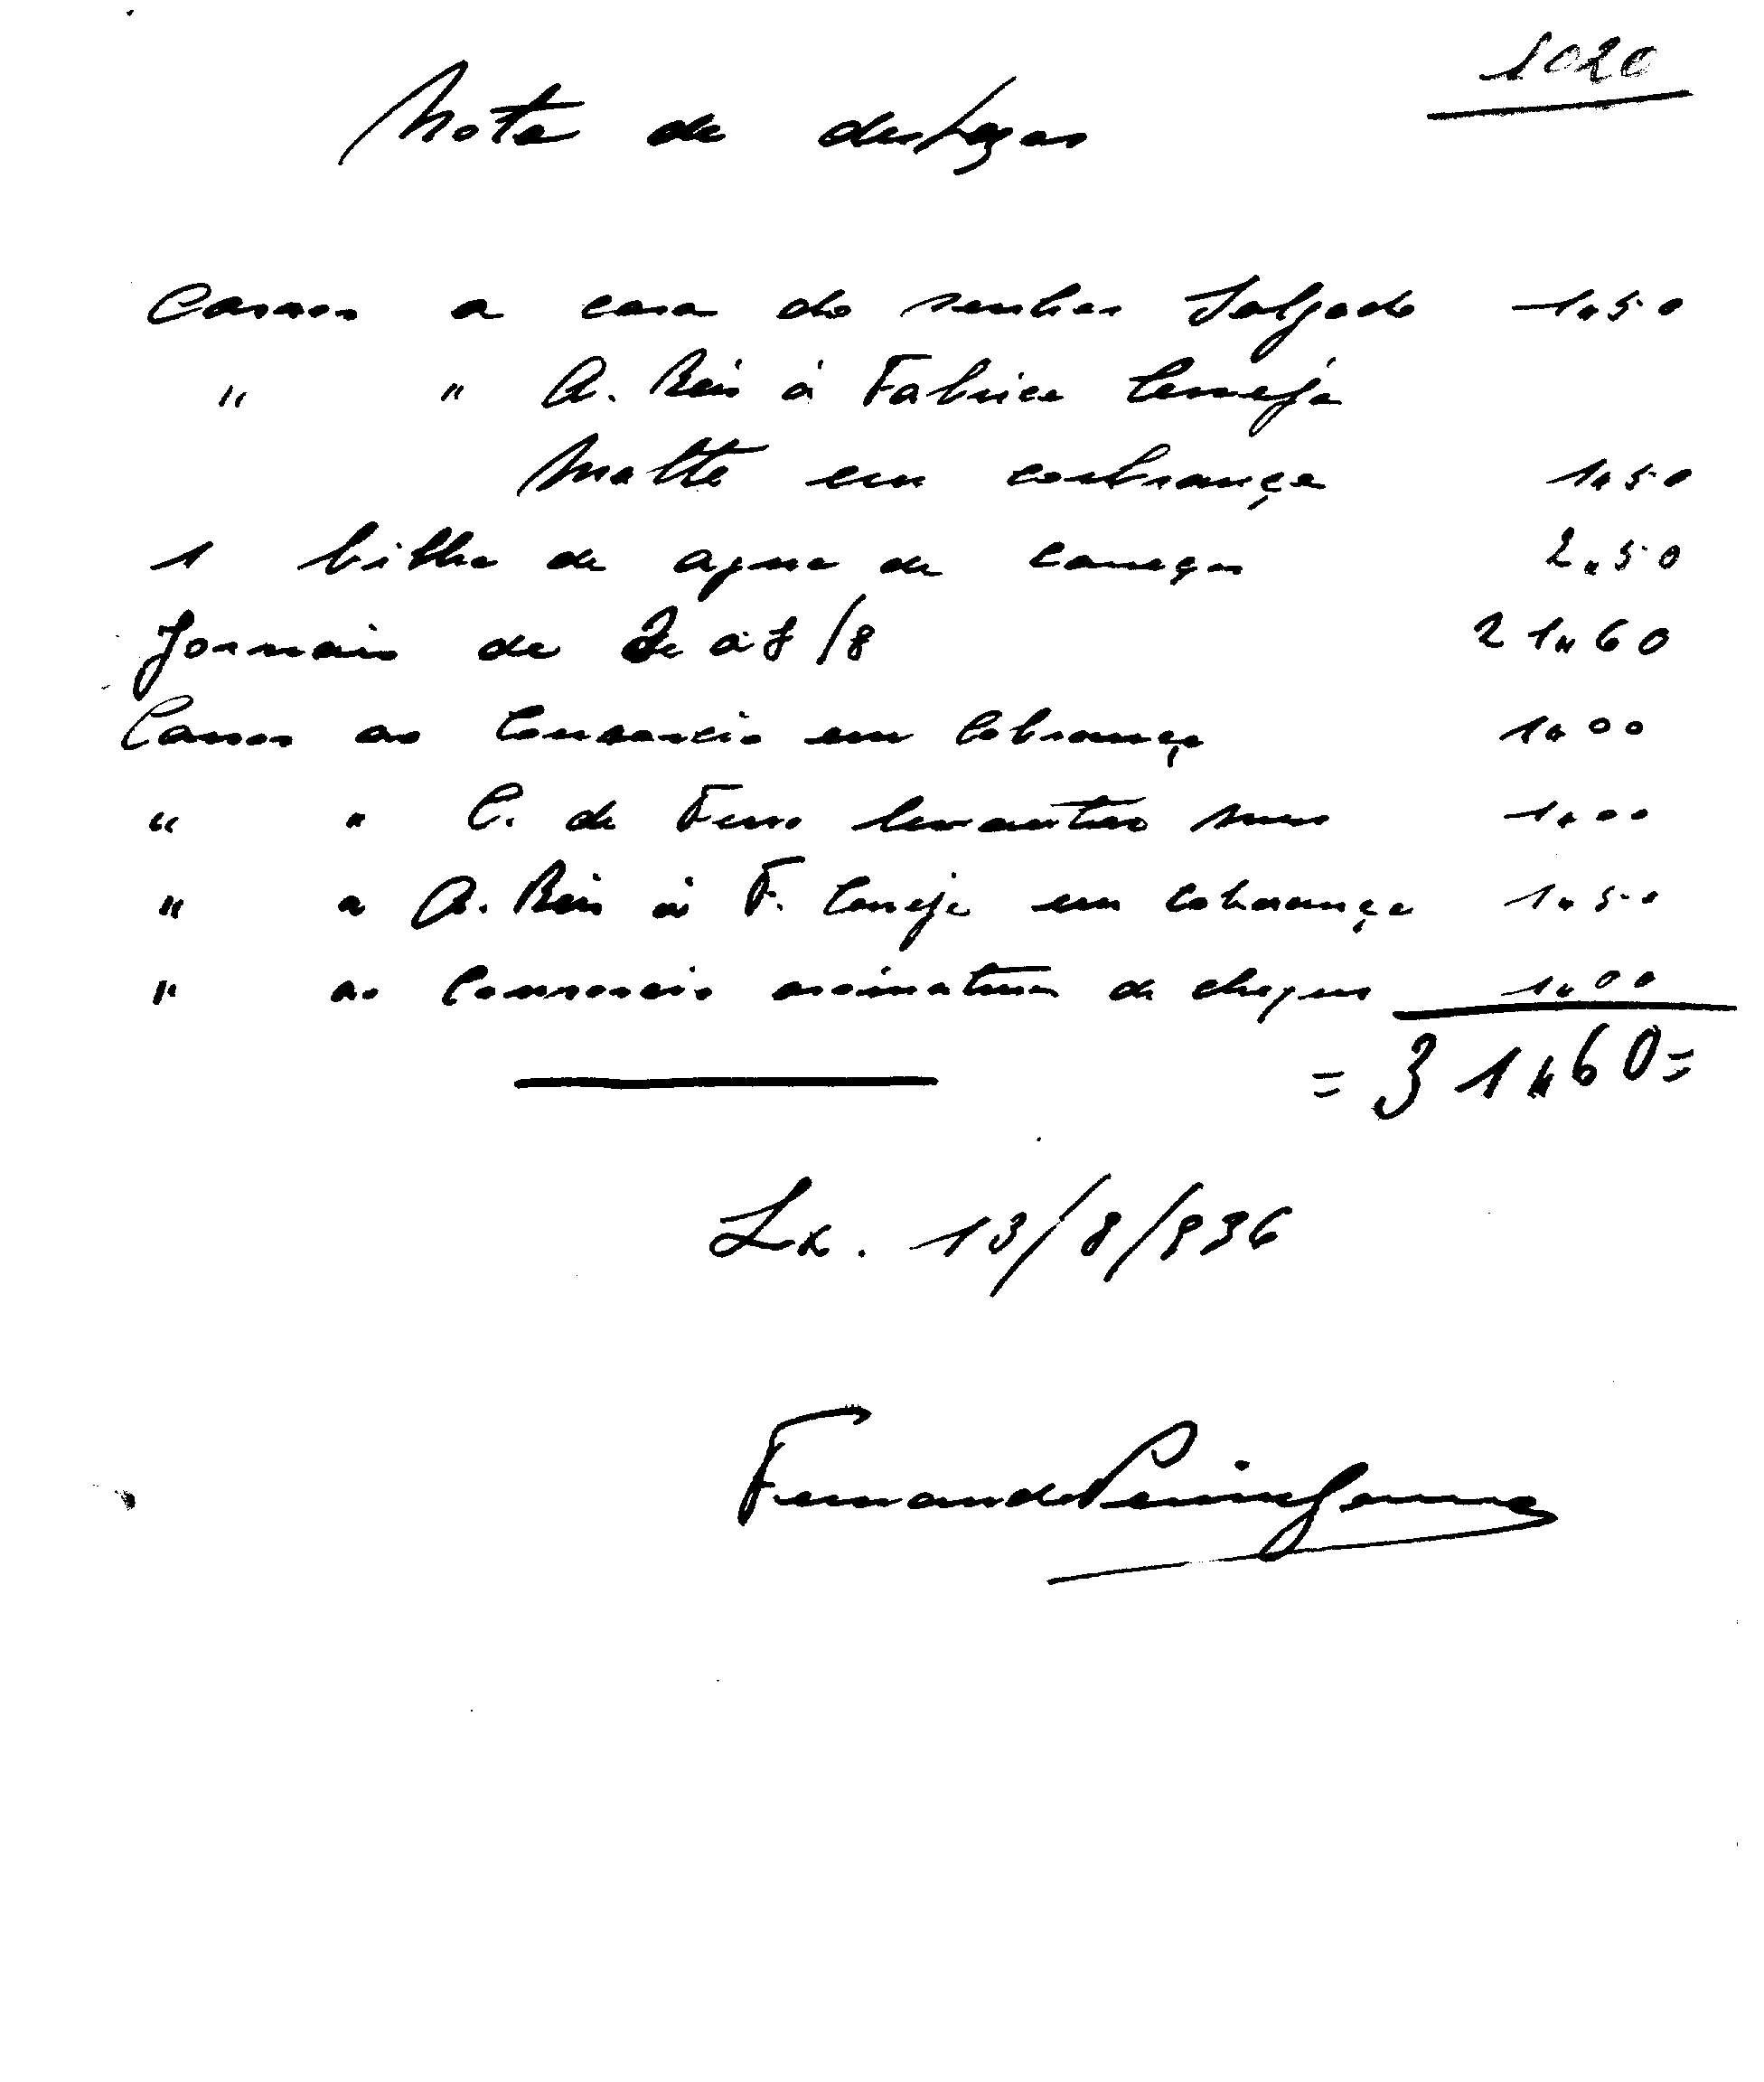 1020
Nota de despezas
Carros a casa do senhor Salgado 1"50
" " A. Reis á Fabrica Cerveja
Malte em cobrança 1"50
1 bilha de agua de caneças 2"50
Jornais de a 8/8 21"60
Carros ao Consorcio em Cobrança 1"00
" " C. de Ferro levantar 1"00
" a A. Reis á F. Cerveja em Cobrança 1"50
" ao Consorcio assinatura de cheques 1"00
= 31"60 =
Lx. 13/8/936
Fernando